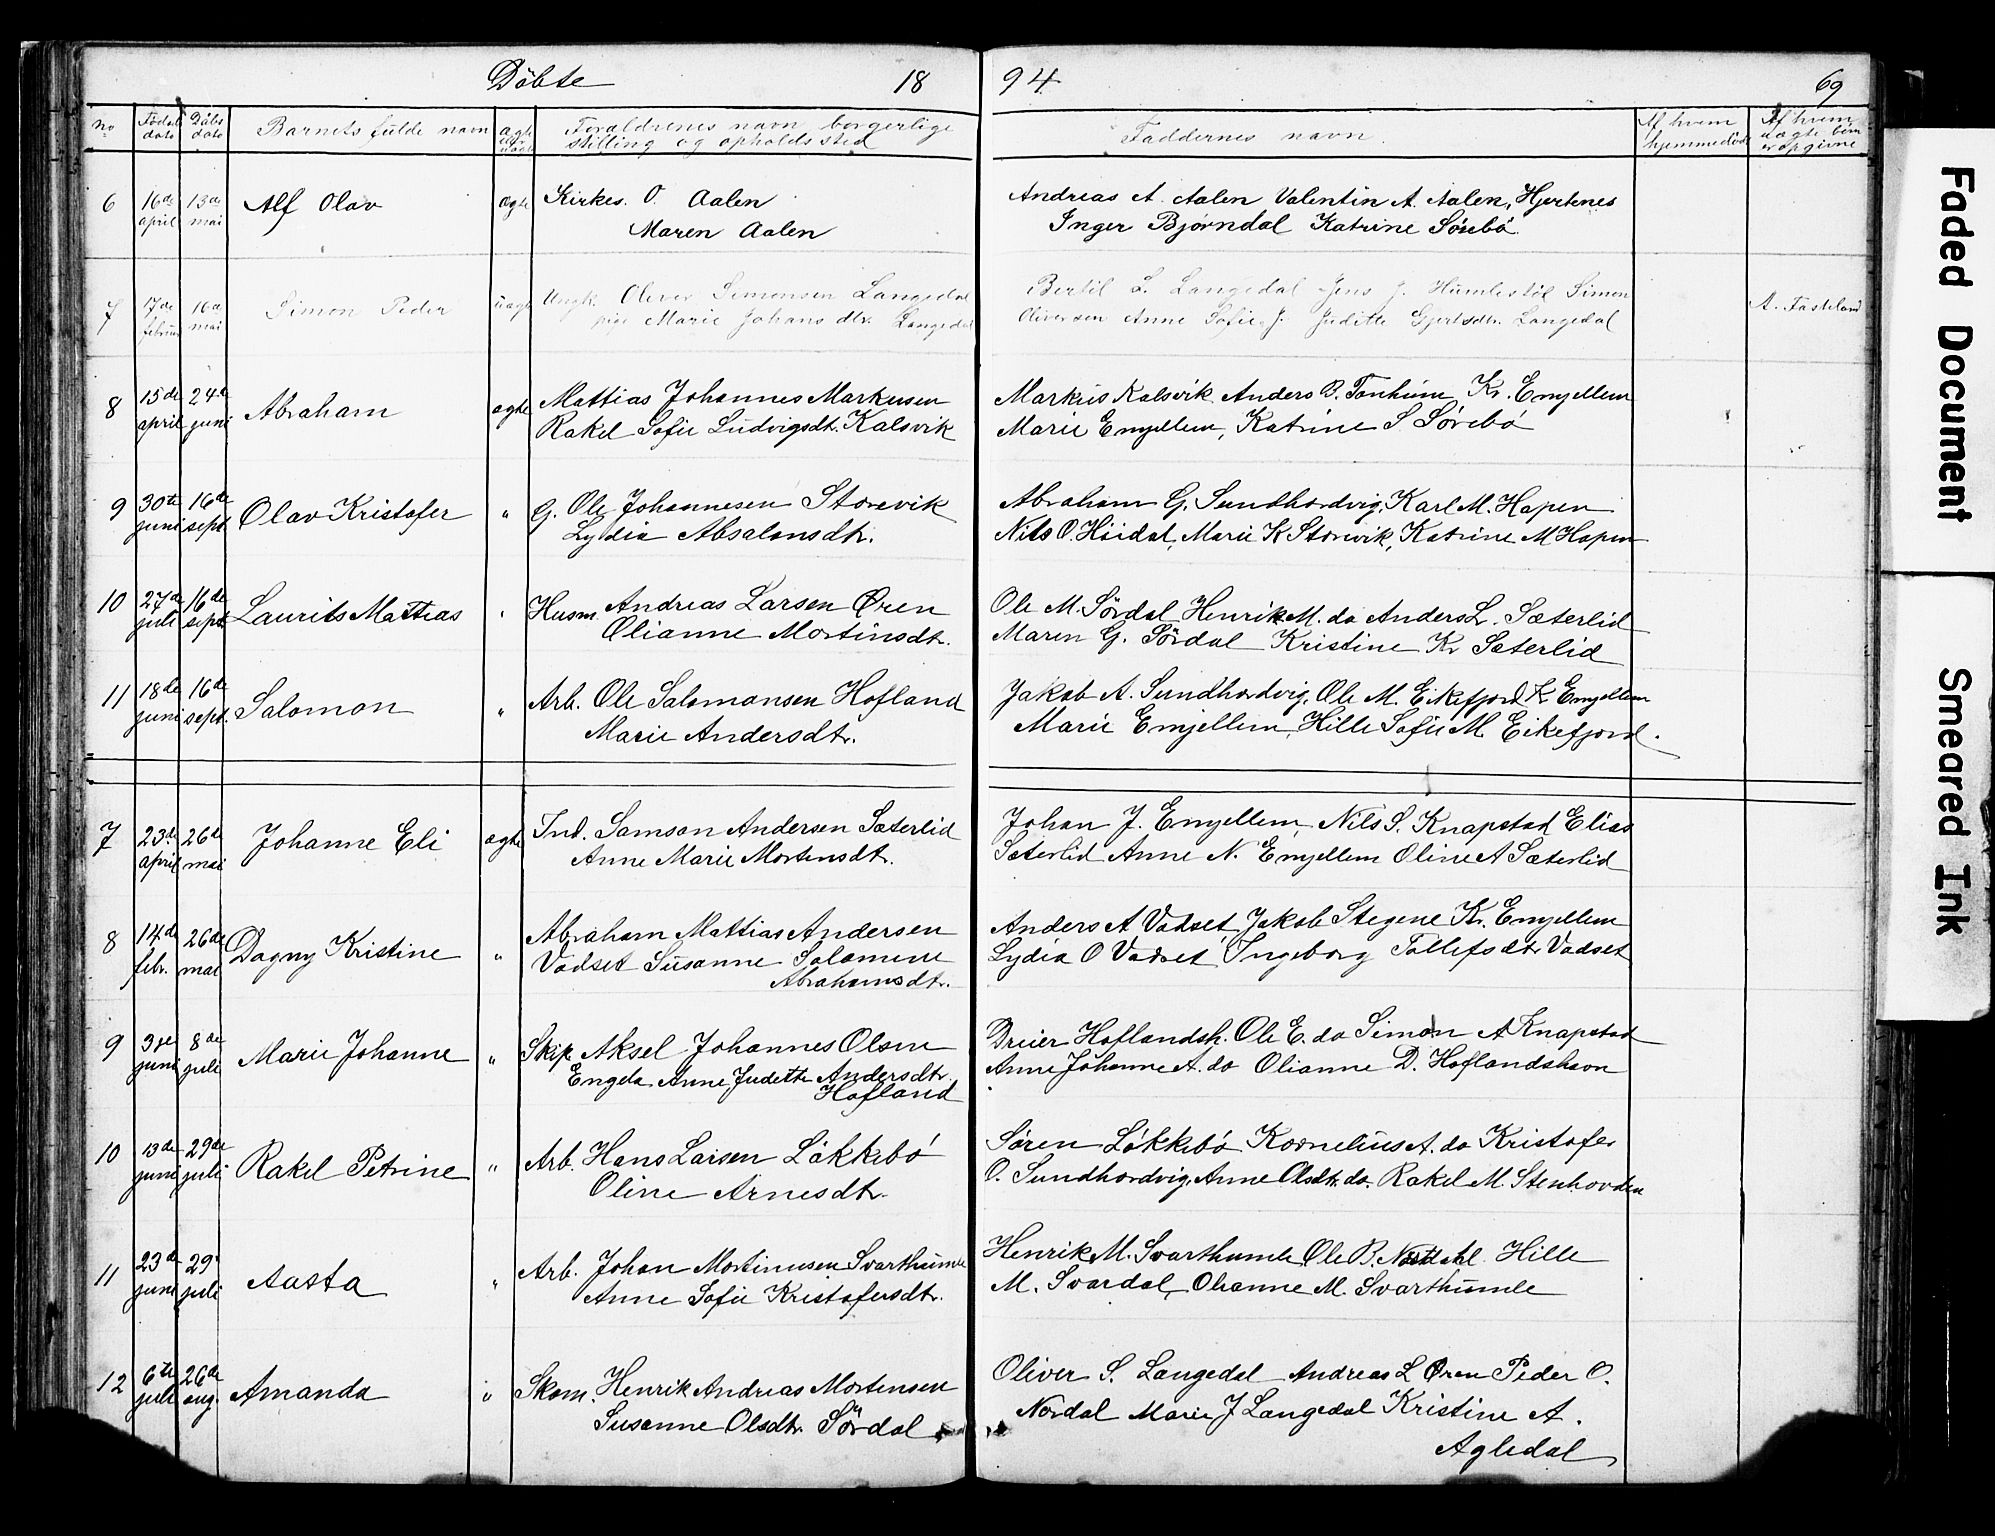 Döbte 18 94 69
no Födsels dato Daabs dato Barnets fulde navn ægte eller uægte Forældrenes navn borgerlige stilling og opholdssted Faddernes navn Af hvem hjemmedöbt Af hvem uægte börn er opgivne
6 16de april 13de mai Alf Olav ægte Kirkes. O. Aalen
Maren Aalen
Andreas A. Aalen Valentin A. Aalen, Hjertenes
Inger Bjørndal Katrine Sörebö
7 17de februar 16de mai Simon Peder uægte Ungk. Oliver Simonsen Langedal
pige Marie Johansdtr. Langedal
Bertil S. Langedal Jens J. Humlestöl Simon
Oliversen Anne Sofie J. Juditte Gjertsdtr. Langedal
A. Fasteland
8 15de april 24de juni Abraham ægte Mattias Johannes Markusen
Rakel Sofie Ludvigsdt. Kalsvik
Markus Kalsvik Anders B. Tonheim Kr. Emjellem
Marie Emjellem, Katrine S Sörebö
9 30te juni 16de sept. Olav Kristofer " G. Ole Johannesen Storevik
Lydia Absalonsdtr.
Abraham G. Sundhordvig, Karl M. Hopen
Nils O. Höidal, Marie K Storevik, Katrine M Hopen
10 27de juli 16de sept. Laurits Mattias " Husm. Andreas Larsen Øren
Olianne Mortinsdtr.
Ole M. Sördal Henrik M. do Anders L. Sæterlid
Maren G. Sördal Kristine Kr Sæterlid
11 18de juni 16de sept. Salomon " Arb. Ole Salomonsen Hofland
Marie Andersdtr.
Jakob A. Sundhordvig, Ole M. Eikefjord K Emjellem
Marie Emjellem, Hille Sofie M. Eikefjord.
7 23de april 26de mai Johanne Eli ægte Ind. Samson Andersen Sæterlid
Anne Marie Mortensdtr.
Johan J. Emjellem, Nils S. Knapstad Elias
Sæterlid Anne N. Emjellem Oline A Sæterlid
8 14de febr. 26de mai Dagny Kristine " Abraham Mattias Andersen
Vadset Susanne Salomine
Abrahamsdtr.
Anders A Vadset, Jakob Stegene Kr. Emjellem
Lydia O Vadset Ingeborg Tollefsdtr Vadset
9 3die juni 8de juli Marie Johanne " Skip. Aksel Johannes Olsen
Engela Anne Judette Andersdtr.
Hofland
Dreier Hoflandsh. Ole E. do Simon A Knapstad
Anne Johanne A. do Olianne D. Hoflandshavn
10 13de juni 29de juli Rakel Petrine " Arb. Hans Larsen Lökkebö
Oline Arnesdtr.
Sören Lökkebö Kornelius A. do Kristofer
O. Sundhordvig, Anne Olsdtr. do. Rakel M. Stenhovden
11 23de juni 29de juli Aasta " Arb. Johan Mortinusen Svarthumle
Anne Sofie Kristofersdtr.
Henrik M. Svarthumle Ole B. Hille
M. Svardal, Olianne M. Svarthumle
12 6te juli 26de aug. Amanda " Skom. Henrik Andreas Mortensen
Susanne Olsdtr. Sördal
Oliver S. Langedal Andreas L Øren Peder O.
Nordal Marie J Langedal Kristine A.
Agledal
Faded Document
Smeared Ink